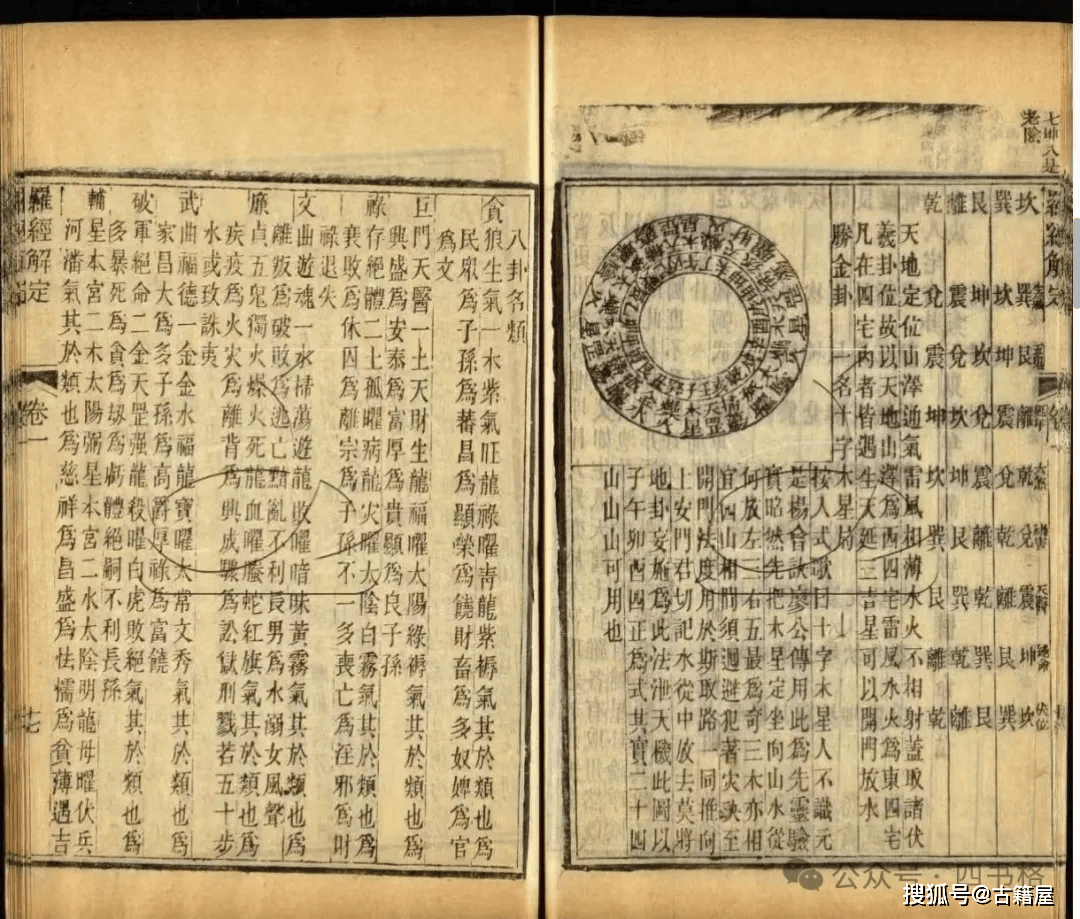 老陰
坎 巽 艮 離 乾 兌 震 坤 坎
巽 坎 坤 震 兌 乾 離 艮 巽
艮 坤 坎 兌 震 離 乾 巽 艮
離 震 兌 坎 坤 巽 艮 乾 離
乾 兌 震 坤 坎 巽 艮 離 乾
天地定位山澤通氣雷風相薄水火不相射蓋取諸伏
羲卦位故以天地山澤爲西四宅雷風水火爲東四宅
凡在四宅內者皆遇生天延三吉星可以開門放水
勝金卦 一名十字木星局
按人式歌曰十字木星人不識元
是楊曾訣廖公傳用此爲先靈驗
實昭然先把木星定坐向山水從
何放左三右五最爲奇三木亦相
宜四山相間須迴避犯著災訣至
開門法度用於斯取路一同推向
上安門君切記水從中放去莫將
地卦妄施爲此法泄天機此圖以
子午卯酉四正爲式其實二十四
山山山可用也
八卦名類
貪狼生氣一木紫氣旺龍祿曜靑龍紫褥氣其於類也爲
民衆爲子孫爲蕃昌爲顯榮爲饒財畜爲多奴婢爲官
爲文
巨門天醫一土天財生龍福曜太陽綠褥氣其於類也爲
興盛爲安泰爲富厚爲貴顯爲良子孫
祿存絕體二土孤曜病龍火曜太陰白霧氣其於類也爲
衰敗爲休囚爲離宗爲子孫不一多喪亡爲淫邪爲財
祿退失
文曲遊魂一水掃蕩遊龍敗曜暗昧黃霧氣其於類也爲
離叛爲破敗爲逃亡點亂不利長男爲水溺女風聲
廉貞五鬼獨火燥火死龍血曜螣蛇紅旗氣其於類也爲
疾疫爲火災爲離背爲興成驟爲訟獄刑戮若五十步
水或致誅夷
武曲福德一金金水福龍寶曜太常文秀氣其於類也爲
家昌大爲多子孫爲高爵厚祿爲富饒
破軍絕命二金天罡强龍殺曜白虎敗絕氣其於類也爲
多暴死爲貪爲刼爲虧體絕嗣不利長孫
輔星本宮二木太陽弼星本宮二水太陰明龍母曜伏兵
河潘氣其於類也爲慈祥爲昌盛爲怯懦爲貧薄遇吉
羅經解定
卷一
十七
公众号·四书格
搜狐号@古籍屋